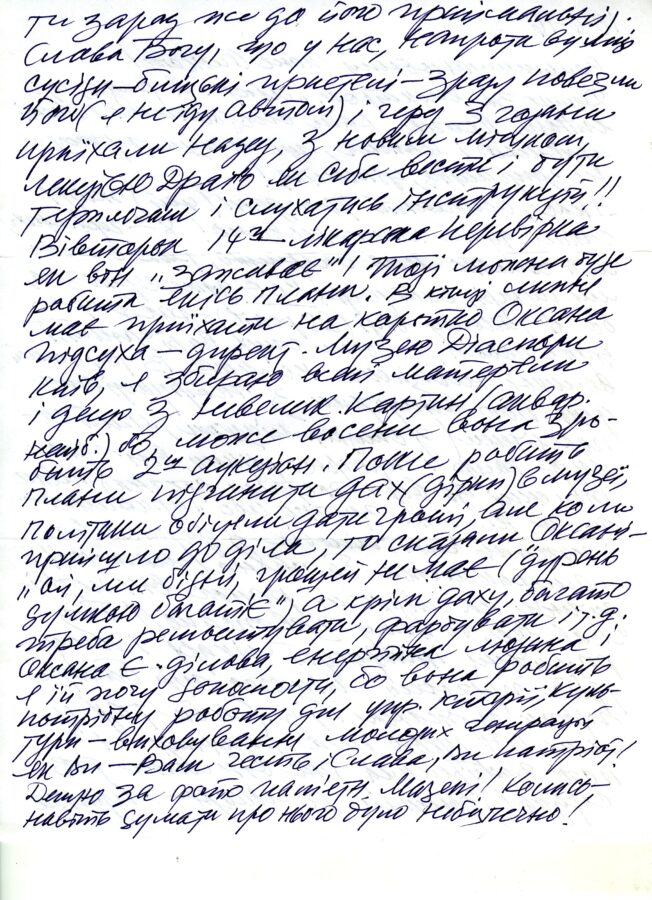 ти зараз же до його приймальні).
Слава Богу, що у нас, напроти вулиці
сусіди – близькі приятелі – зразу повезли
його (я не їду автом) і через 3 години
приїхали назад, з новим
Драто ли себе вести і бути
терплячим і слухатись інструкцій!!
Вівторок 14го – лікарська перевірка
як він "заживає"! Тоді можна буде
робити якісь плани. В кінці липня
має приїхати на коротко Оксана
Підсуха – директ. Музею Діаспори
Київ, я збираю всякі матеріали
і дещо з невелик. картин (аквар.
) бо може восени вона зро-
бить 2ий аукціон. Поки робить
плани підчинити дах (дірки) в музеї,
політики обіцяли дати гроші, але коли
прийшло до діла, то сказали Оксані –
"ой, ми бідні, грошей немає ("дурень
думкою багатіє") а крім даху, багато
треба ремонтувати, фарбувати і т.д.
Оксана є ділова, енергійна людина і
я їй хочу допомогти, бо вона робить
потрібну роботу для укр. історії, куль-
тури – виховування молодих генерацій
як Ви – Вам честь і Слава, Ви патріот!
Дякую за фото пам'ятн. Мазепі! Колись –
навіть думати про нього було небезпечно!